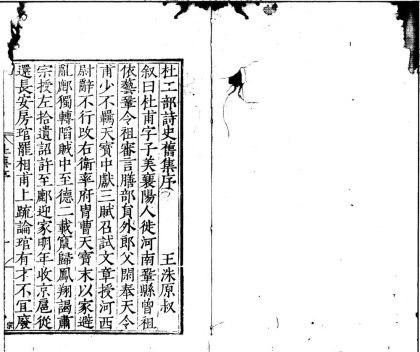 杜工部詩史舊集序 王洙原叔
叙曰杜甫字子美襄陽人徙河南鞏縣曾祖
依藝鞏令祖審言膳部員外郎父閑奉天令
甫少不羈天寶中獻三賦召試文章授河西
尉辭不行改右衛率府冑曹天寶末以家避
亂鄜獨轉陷賊中至德二載竄歸鳳翔謁肅
宗授左拾遺詔許至鄜迎家明年收京扈從
還長安房琯罷相甫上疏論琯有才不宜廢